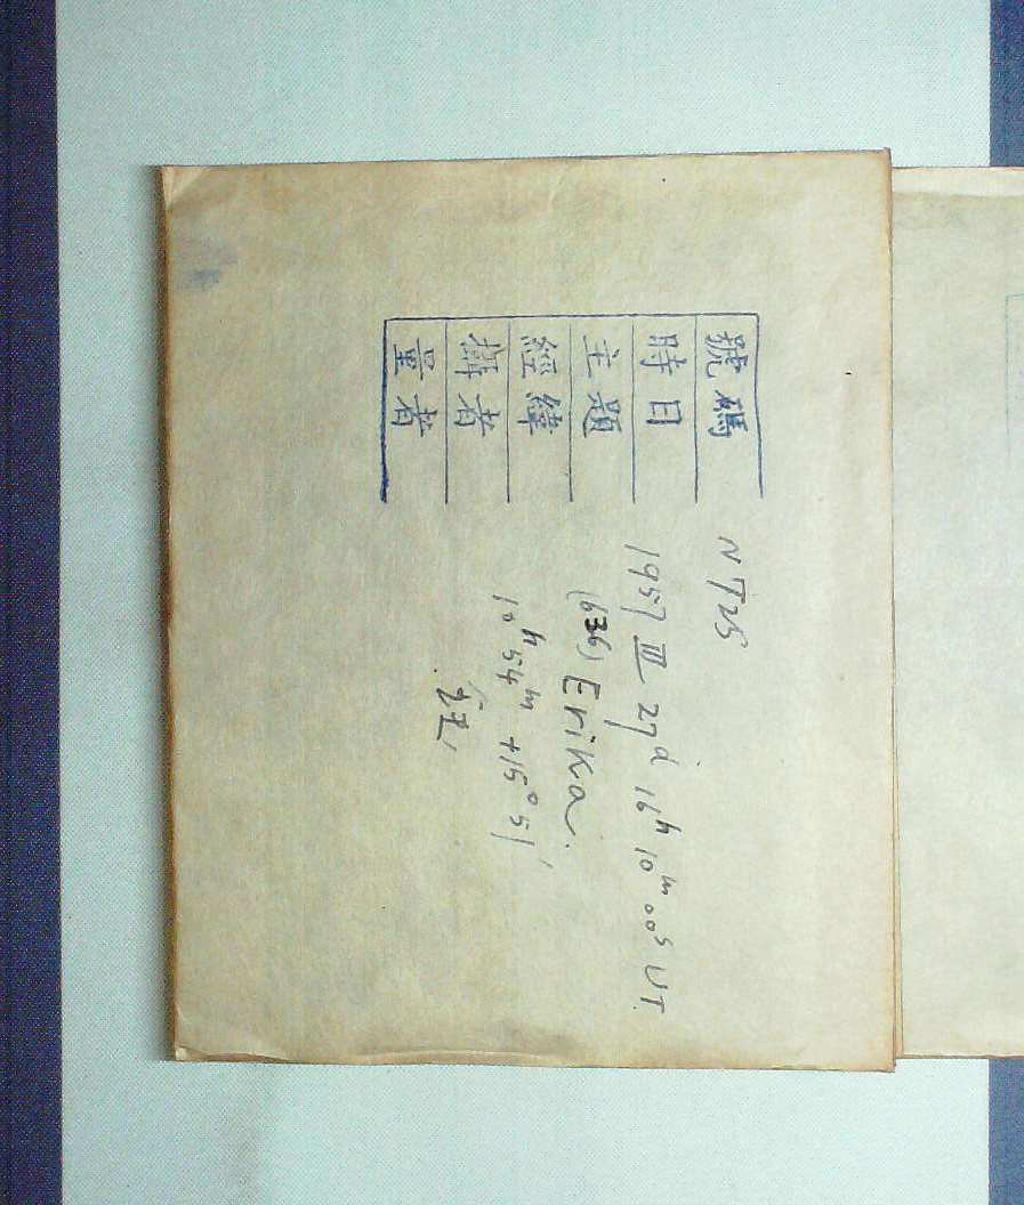 號碼 NT25
時日 1957 III 27d 16h 10m 00s UT
主題 (636) Erika.
經緯 10h 54m +15° 51'
攝者
量者